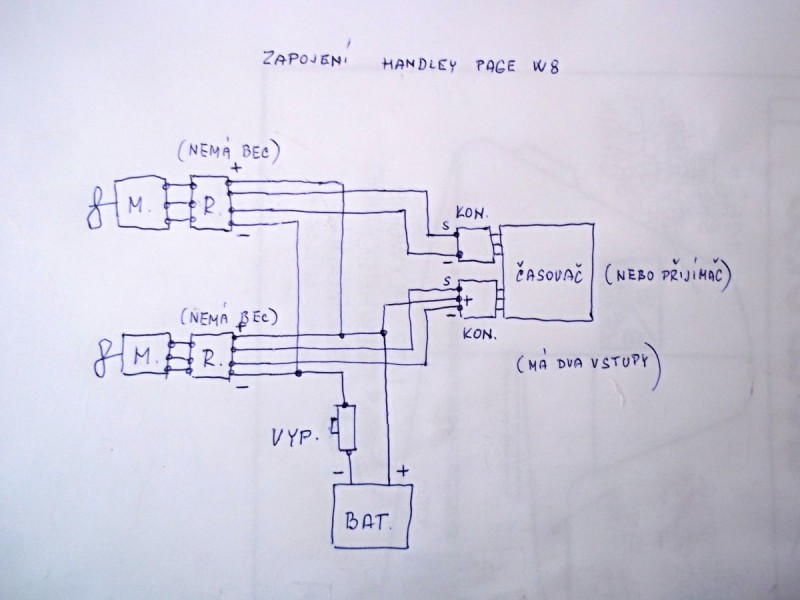 ZAPOJENÍ HANDLEY PAGE W8
(NEMÁ BEC)
+
M. R.
−
KON.
S
−
ČASOVAČ (NEBO PŘIJÍMAČ)
S
+
−
KON.
(MÁ DVA VSTUPY)
(NEMÁ BEC)
+
M. R.
−
VYP.
− +
BAT.